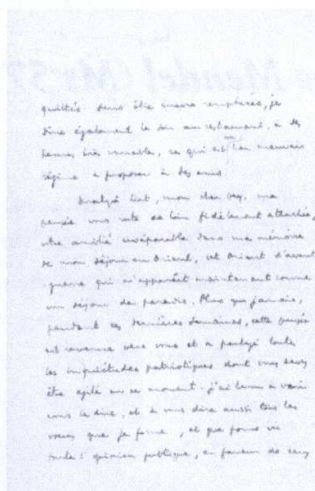 quittés sans être encore remplacés, je
dîne également le soir au restaurant, à des
heures très variables, ce qui est un bien mauvais
régime à proposer à des amis
Malgré tout, mon cher bey, ma
pensée vous reste de loin fidèlement attachée,
votre amitié inséparable dans ma mémoire
de mon séjour en Orient, cet Orient d'avant
guerre qui m'apparaît maintenant comme
un séjour de paradis. Plus que jamais,
pendant ces dernières semaines, cette pensée
est revenue vers vous et a partagé toutes
les inquiétudes patriotiques dont vous devez
être agité en ce moment. j'ai tenu à venir
vous le dire, et à vous dire aussi tous les
vœux que je forme, et que forme ici
toute l'opinion publique, en faveur de